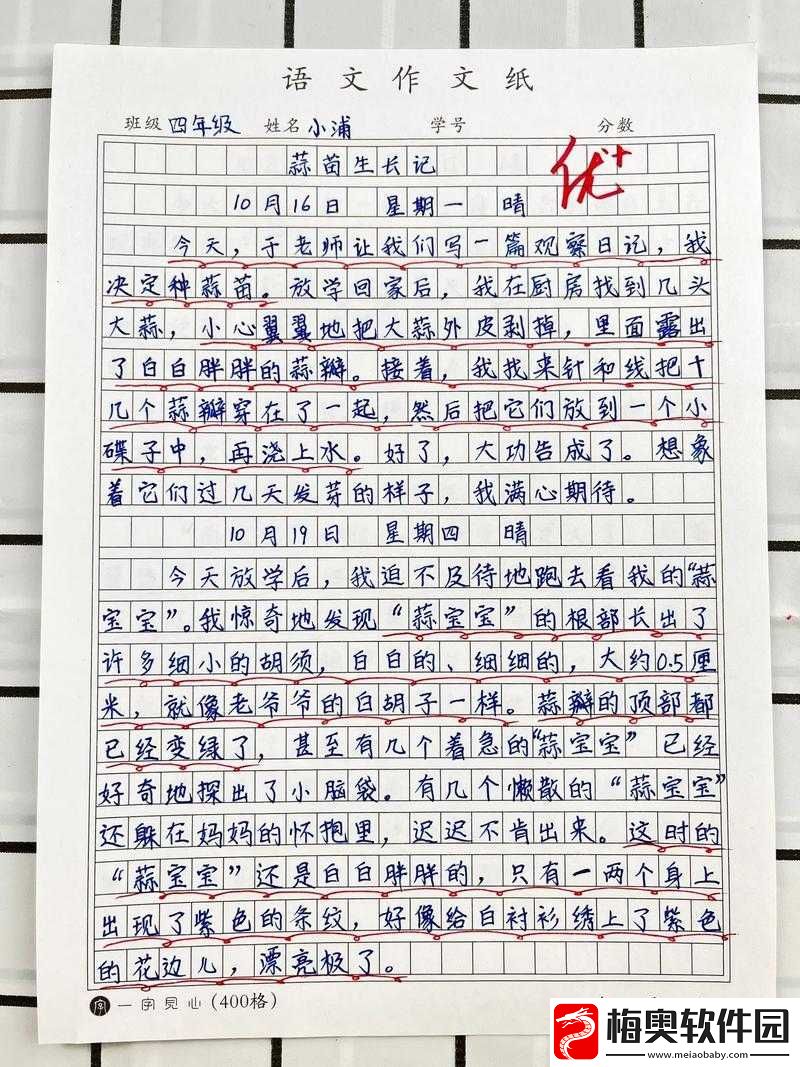 语文作文纸
班级 四年级 姓名 小浦 学号 分数
优+
蒜苗生长记
10月16日 星期一 晴
今天,于老师让我们写一篇观察日记,我
决定种蒜苗。放学回家后,我在厨房找到几头
大蒜,小心翼翼地把大蒜外皮剥掉,里面露出
了白白胖胖的蒜瓣。接着,我找来针和线把十
几个蒜瓣穿在了一起,然后把它们放到一个小
碟子中,再浇上水。好了,大功告成了。想象
着它们过几天发芽的样子,我满心期待。
10月19日 星期四 晴
今天放学后,我迫不及待地跑去看我的“蒜
宝宝”。我惊奇地发现“蒜宝宝”的根部长出了
许多细小的胡须,白白的、细细的,大约0.5厘
米,就像老爷爷的白胡子一样。蒜瓣的顶部都
已经变绿了,甚至有几个着急的“蒜宝宝”已经
好奇地探出了小脑袋。有几个懒散的“蒜宝宝”
还躲在妈妈的怀抱里,迟迟不肯出来。这时的
“蒜宝宝”还是白白胖胖的,只有一两个身上
出现了紫色的条纹,好像给白衬衫绣上了紫色
的花边儿,漂亮极了。
字 一字见心(400格)
梅奥软件园
www.meiaobaby.com